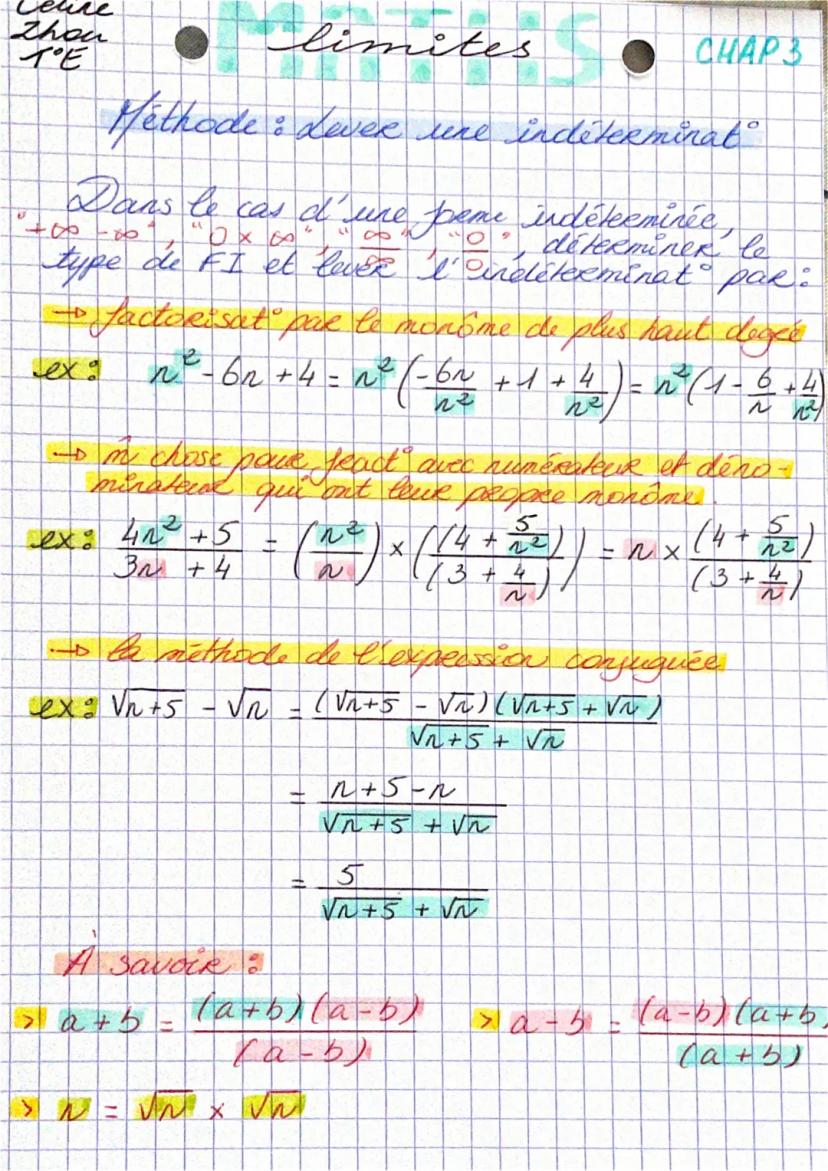 Zhou
1°E
MATHS
limites
CHAP 3
Méthode : Lever une indéterminat°
Dans le cas d'une forme indéterminée,
"+∞ -∞", "0 × ∞", "∞/∞", "0/0", déterminer le
type de FI et lever l'indéterminat° par :
→ factorisat° par le monôme de plus haut degré
ex : n² - 6n + 4 = n² (-6n/n² + 1 + 4/n²) = n² (1 - 6/n + 4/n²)
→ m̂ chose pour fract° avec numérateur et déno-
minateur qui ont leur propre monôme.
ex : (4n² + 5)/(3n + 4) = (n²/n) × ((4 + 5/n²)/(3 + 4/n)) = n × (4 + 5/n²)/(3 + 4/n)
→ la méthode de l'expression conjuguée
ex : √(n+5) - √n = (√(n+5) - √n)(√(n+5) + √n)/(√(n+5) + √n)
= (n + 5 - n)/(√(n+5) + √n)
= 5/(√(n+5) + √n)
À savoir :
> a + b = (a+b)(a-b)/(a-b) > a - b = (a-b)(a+b)/(a+b)
> n = √n × √n